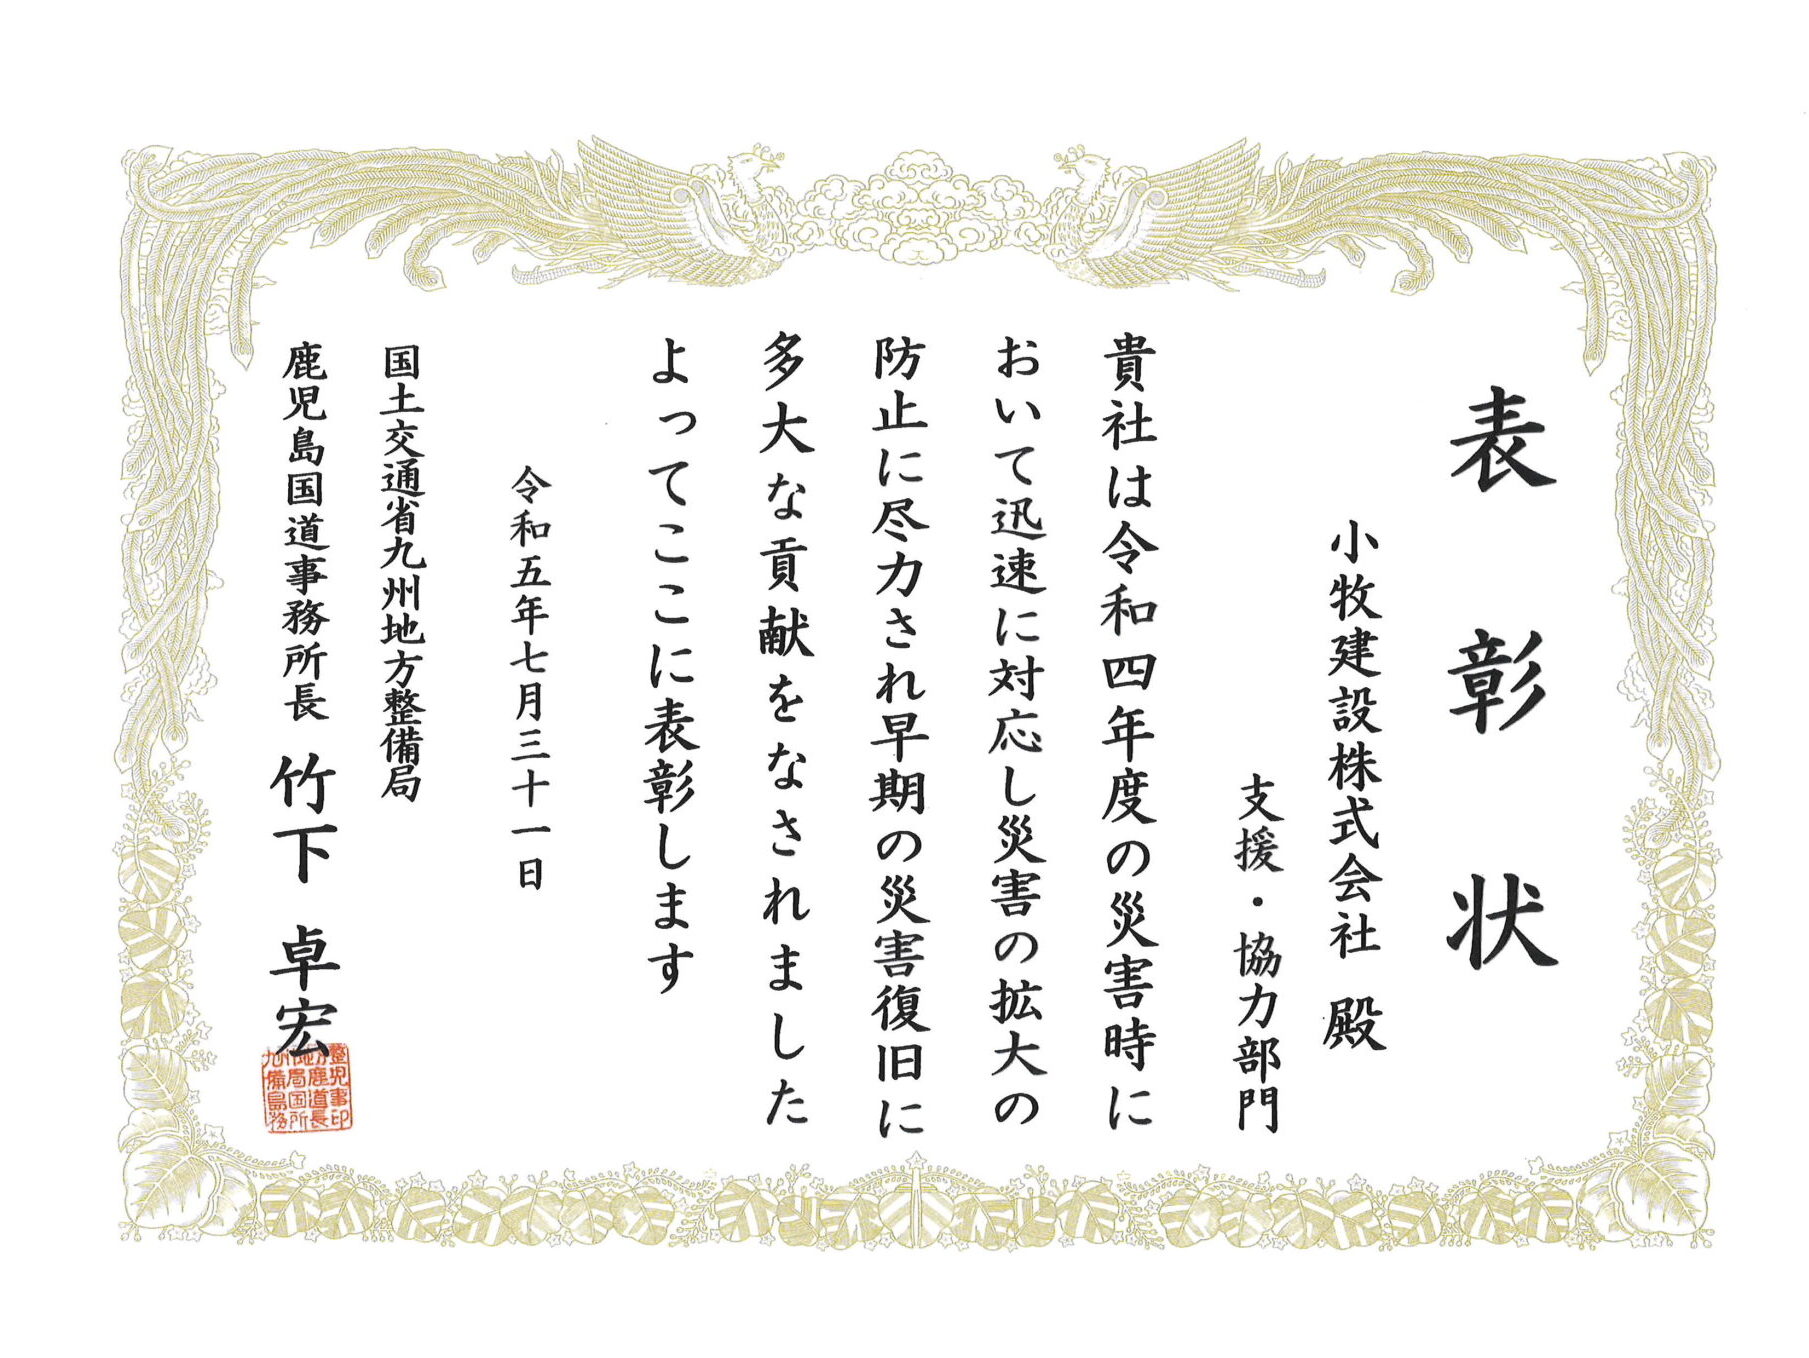 表彰状
小牧建設株式会社 殿
支援・協力部門
貴社は令和四年度の災害時に
おいて迅速に対応し災害の拡大の
防止に尽力され早期の災害復旧に
多大な貢献をなされました
よってここに表彰します
令和五年七月三十一日
国土交通省九州地方整備局
鹿児島国道事務所長 竹下 卓宏